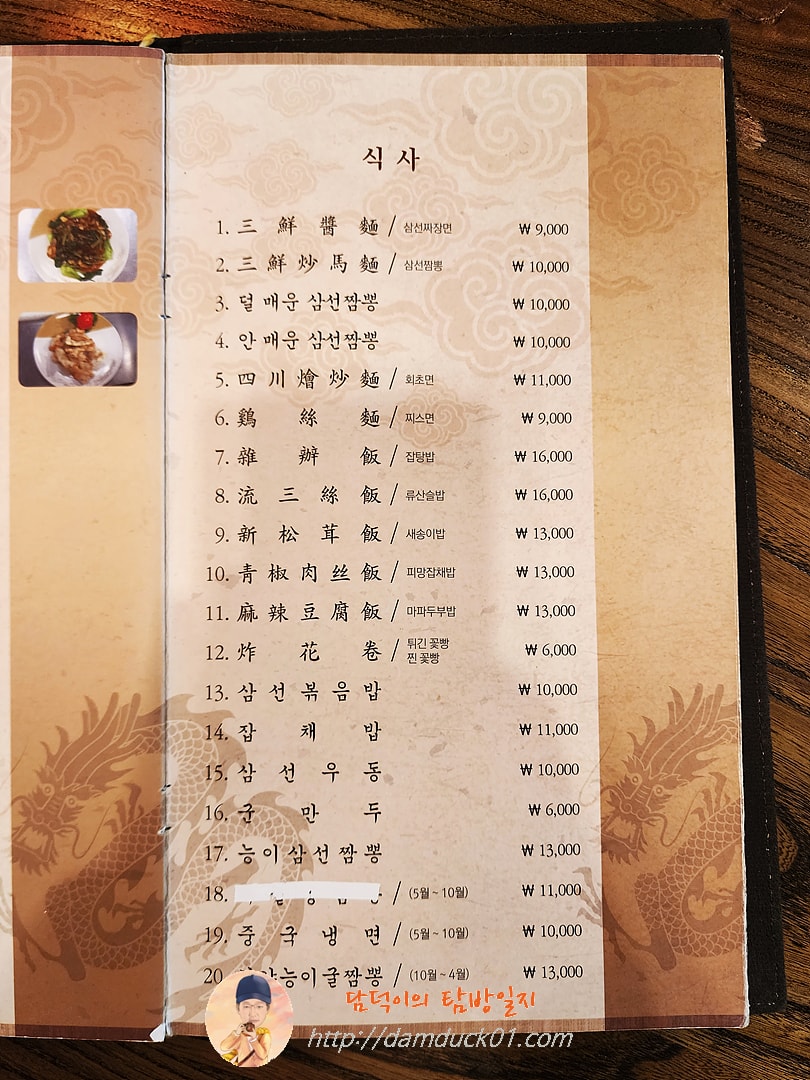 식사
1. 三鮮醬麵 / 삼선짜장면 ₩ 9,000
2. 三鮮炒馬麵 / 삼선짬뽕 ₩ 10,000
3. 덜 매운 삼선짬뽕 ₩ 10,000
4. 안 매운 삼선짬뽕 ₩ 10,000
5. 四川燴炒麵 / 회초면 ₩ 11,000
6. 鷄絲麵 / 찌스면 ₩ 9,000
7. 雜辦飯 / 잡탕밥 ₩ 16,000
8. 流三絲飯 / 류산슬밥 ₩ 16,000
9. 新松茸飯 / 새송이밥 ₩ 13,000
10. 靑椒肉丝飯 / 피망잡채밥 ₩ 13,000
11. 麻辣豆腐飯 / 마파두부밥 ₩ 13,000
12. 炸花卷 / 튀긴 꽃빵 찐 꽃빵 ₩ 6,000
13. 삼선볶음밥 ₩ 10,000
14. 잡채밥 ₩ 11,000
15. 삼선우동 ₩ 10,000
16. 군만두 ₩ 6,000
17. 능이삼선짬뽕 ₩ 13,000
18. / (5월 ~ 10월) ₩ 11,000
19. 중국냉면 / (5월 ~ 10월) ₩ 10,000
20. / (10월 ~ 4월) ₩ 13,000
담덕이의 탐방일지
http://damduck01.com